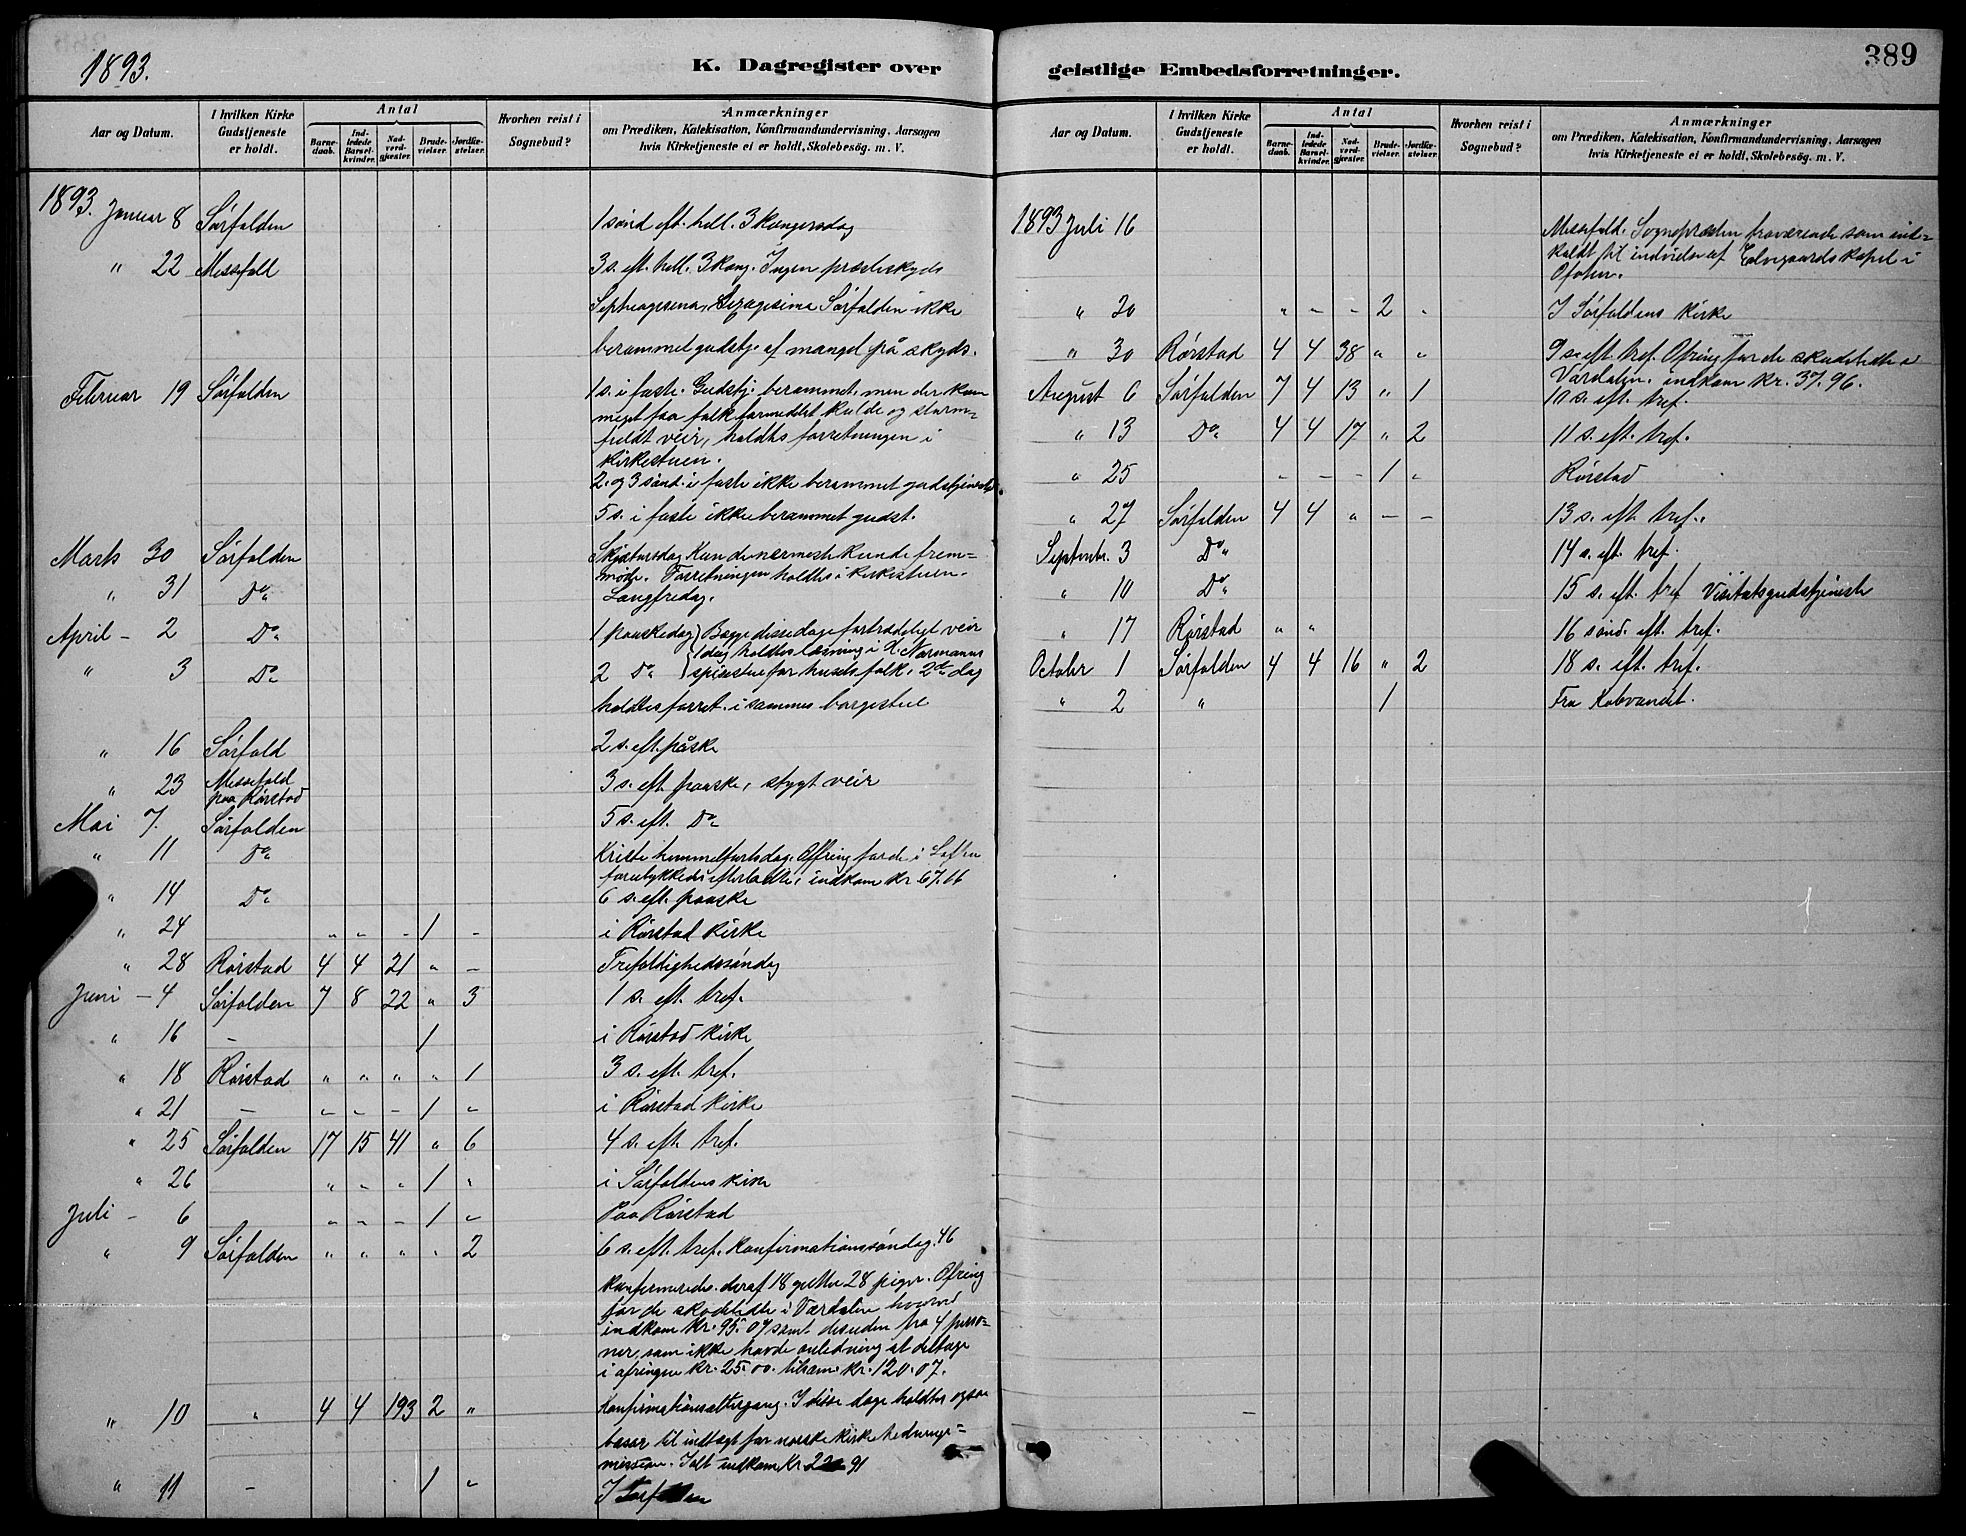 1893.
K. Dagregister over
Aar og Datum. I hvilken Kirke Gudstjeneste er holdt. Antal Barnedaab. Indledede Barselkvinder. Nadverdgjester. Brudevielser. Jordfæstelser. Hvorhen reist i Sognebud? Anmærkninger om Prædiken, Katekisation, Konfirmandundervisning, Aarsagen hvis Kirketjeneste ei er holdt, Skolebesög. m. V.
1893. Januar 8 Sörfolden 1 sönd eft. hell. 3 Kongersdag
" 22 Messefold 3 s. eft. hell. 3 Kong. Ingen præsteskyds
Septuagesima, Sexagesima Sörfolden ikke
berammet gudstj. af mangel på skyds.
Februar 19 Sörfolden 1 s. i faste. Gudstj. berammet, men der kom
meget faa folk formedelst kulde og storm-
fuldt veir, holdtes forretningen i
Kirkestuen.
2. og 3 sönd. i faste ikke berammet gudstjeneste
5 s. i faste ikke berammet gudst.
Marts 30 Sörfolden Skjærtorsdag Kun de nærmeste kunde frem-
möde. Forretningen holdtes i kirkestuen.
" 31 Do. Langfredag.
April - 2 Do. 1 paaskedag Begge disse dage fortrædeligt veir
1 dag holdtes læsning i L. Normanns
" 3 Do. 2 Do spisestue for husets folk. 2den dag
holdtes forret. i sammes borgestue
" 16 Sörfold 2 s. eft. påske
" 23 Messefold paa Rörstad 3 s. eft paaske, stygt veir
Mai 7. Sörfolden 5 s. eft. Do
" 11 Do Kristi himmelfartsdag. Offring for de i Lofoten
forulykkedes efterladte, indkom kr 67.66
" 14 Do 6 s. eft. paaske
" 24 " " - 1 - i Rörstad Kirke
" 28 Rörstad 4 4 21 " - Trefoldighedssöndag
Juni - 4 Sörfolden 7 8 22 " 3 1 s. eft. tref.
" 16 - 1 i Rörstad Kirke
" 18 Rörstad " " " " 1 3 s. eft. tref.
" 21 - " " - 1 " i Rörstad Kirke
" 25 Sörfolden 17 15 41 " 6 4 s. eft. tref.
" 26 " " " 1 " i Sörfoldens kirke
Juli - 6 " " - 1 " Paa Rörstad
" 9 Sörfolden " " " " 2 6 s. eft. tref. Konfirmationssöndag. 46
konfirmeredes. deraf 18 gutter 28 piger. Ofring
for de skadelidte i Værdalen hvorved
indkom kr. 95.07 samt desuden fra 4 perso-
ner, som ikke havde anledning at deltage
i ofringen kr. 25.00. tilsam. kr. 120.07.
" 10 " 4 4 193 2 " Konfirmationsaltergang. I disse dage holdtes ogsaa
basar til indtægt for norske kirke hednings-
mission. Ialt indkom kr. 91
" 11 - 1 " I Sörfolden
geistlige Embedsforretninger.
389
Aar og Datum. I hvilken Kirke Gudstjeneste er holdt. Antal Barnedaab. Indledede Barselkvinder. Nadverdgjester. Brudevielser. Jordfæstelser. Hvorhen reist i Sognebud? Anmærkninger om Prædiken, Katekisation, Konfirmandundervisning, Aarsagen hvis Kirketjeneste ei er holdt, Skolebesög. m. V.
1893 Juli 16 Messefald. Sognepræsten fraværende som ind-
kaldt til indvielse af Elvegaards kapel i
Ofoten.
" 20 " - - 2 " I Sörfoldens Kirke
" 30 Rörstad 4 4 38 " " 9 s. eft. tref. Ofring for de skadelidte i
Værdalen. indkom kr. 37.96.
August 6 Sörfolden 7 4 13 " 1 10 s. eft. tref.
" 13 Do. 4 4 17 " 2 11 s. eft. tref.
" 25 - - - 1 " Rörstad
" 27 Sörfolden 4 4 " - - 13 s. eft. tref.
Septembr. 3 Do. 14 s. eft. tref.
" 10 Do. 15 s. eft. tref Visitatsgudstjeneste
" 17 Rörstad " " 16 sönd. eft. tref.
Octobr 1 Sörfolden 4 4 16 " 2 18 s. eft. tref.
" 2 " 1 Fra Kobvandet.